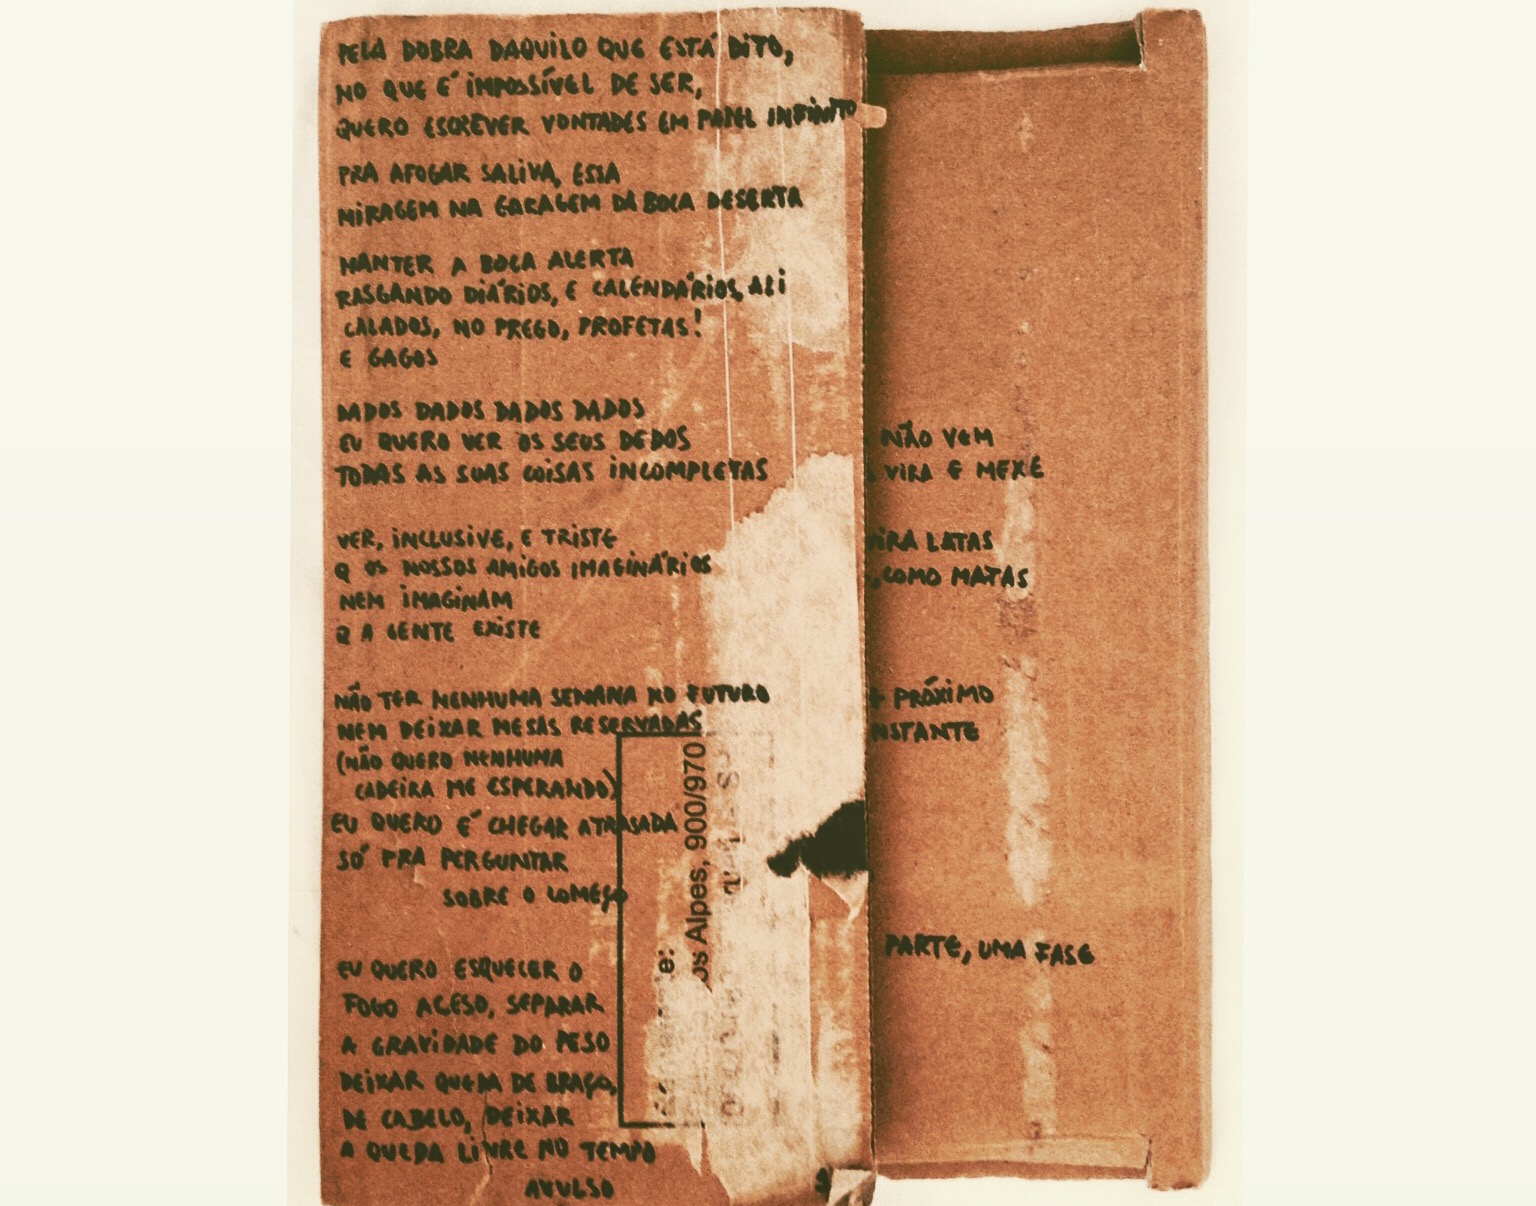 PELA DOBRA DAQUILO QUE ESTÁ DITO,
NO QUE É IMPOSSÍVEL DE SER,
QUERO ESCREVER VONTADES EM PAPEL INFINITO
PRA AFOGAR SALIVA, ESSA
MIRAGEM NA GARAGEM DA BOCA DESERTA
MANTER A BOCA ALERTA
RASGANDO DIÁRIOS, E CALENDÁRIOS, ALI
CALADOS, NO PREGO, PROFETAS!
E GAGOS
DADOS DADOS DADOS DADOS
EU QUERO VER OS SEUS DEDOS
TODAS AS SUAS COISAS INCOMPLETAS
VER, INCLUSIVE, E TRISTE
Q OS NOSSOS AMIGOS IMAGINÁRIOS
NEM IMAGINAM
Q A GENTE EXISTE
NÃO TER NENHUMA SEMANA NO FUTURO
NEM DEIXAR MESAS RESERVADAS
(NÃO QUERO NENHUMA
CADEIRA ME ESPERANDO)
EU QUERO É CHEGAR ATRASADA
SÓ PRA PERGUNTAR
SOBRE O COMEÇO
EU QUERO ESQUECER O
FOGO ACESO, SEPARAR
A GRAVIDADE DO PESO
DEIXAR QUEDA DE BRAÇO,
DE CABELO, DEIXAR
A QUEDA LIVRE NO TEMPO
AVULSO
NÃO VEM
VIRA E MEXE
VIRA LATAS
, COMO MATAS
+ PRÓXIMO
NSTANTE
PARTE, UMA FASE
e:
os Alpes, 900/970